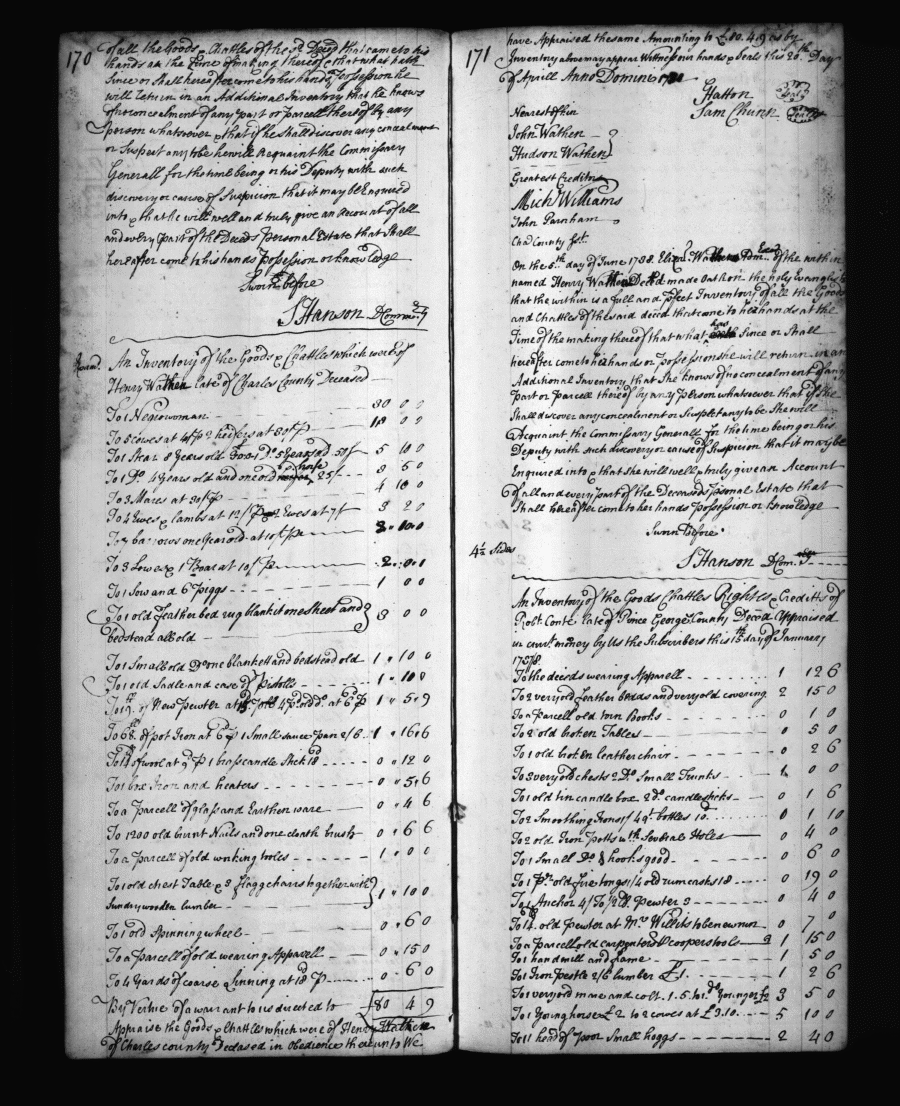 170
of all the Goods & Chattles of the sd. Deced that came to his
hands at the time of making thereof & that what hath
Since or Shall hereafter come to his hands or possession he
will return in an Additional Inventory that he knows
of no concealment of any part or parcell thereof by any
person whatsoever & that if he shall discover any concealment
or Suspect any to be he will acquaint the Commissary
Generall for the time being or his Deputy with such
discovery or cause of Suspicion that it may be Enquired
into & that he will well and truly give an Account of all
and every part of the Deceds personal Estate that Shall
hereafter come to his hands possession or knowledge
Sworn before
S Hanson DComry
An Inventory of the Goods & Chattles which were of
Henry Wathen late of Charles County Deceased
To 1 Negro woman 30 0 0
To 5 cowes at 2 heifers at 30/ p 18 0 0
To 1 Stear 8 years old Do. 5 years old 50/ 5 10 0
To 1 Do. 4 years old and one old 25/ 3 5 0
To 3 Mares at 30/ p 4 10 0
To 4 Ewes & lambs at 12/ p 2 Ewes at 7/ 3 2 0
To barrows one year old at 10/ p 3 10 0
To 3 Sowes & 1 Boar at 10/ p 2 0 0
To 1 Sow and 6 piggs 1 0 0
To 1 old feather bed rug blankit one sheet and
bedstead all old 3 0 0
To 1 Small old Do one blankett and bedstead old 1 10 0
To 1 old Sadle and case of pistolls 1 10 0
To 19 lb. of New pewter at old at 6d p 1 5 9
To 68 lb. of pot Iron at 6d p 1 Small sauce pan 2/6 1 16 6
To of wool at 9d p 1 brass candle Stick 18d 0 12 0
To 1 box Iron and heaters 0 5 6
To a Parcell of glass and Earthen ware 0 4 6
To 1200 old burnt Nails and one cloath brush 0 6 6
To a parcell of old working tooles 1 0 0
To 1 old chest Table & 3 flagg chairs together with
Sundry wooden lumber 1 10 0
To 1 old Spinning wheel 0 6 0
To a Parcell of old wearing Apparell 0 15 0
To 4 yards of coarse Linning at 18d p 0 6 0
By Vertue of a warrant to us directed to £80 4 9
Appraise the Goods & Chattles which were of Henry Wathen
of Charles county Deceased in Obedience thereunto We
171
have Appraised the same Amounting to £80.4.9 as by
Inventory above may appear Witness our hands & Seals this 26th Day
of Aprill Anno Domine
Gatton Seal
Sam Chunn Seal
Nearest of kin
John Wathen
Hudson Wathen
Greatest Creditrs
Mich Williams
John Parnham
Cha County Sst.
On the 6th day of June 1738 Eliza. Wathen Exex of the within
named Henry Wathen Deced made Oath on the holy Evangelist
that the within is a full and pfect Inventory of all the Goods
and Chattles of the said deced that come to her hands at the
Time of the making thereof that what has Since or Shall
hereafter come to her hands or possession She will return in an
Additional Inventory that She knows of no concealment of any
part or parcell thereof by any person whatsoever that if She
Shall discover any concealment or Suspect any to be She will
Acquaint the Commissary Generall for the time being or his
Deputy with such discovery or cause of Suspicion that it may be
Enquired into & that she will well & truly give an Account
of all and every part of the Deceaseds personal Estate that
Shall hereafter come to her hands possession or knowledge
Sworn Before
4½ Sides
S Hanson DCom.ry
An Inventory of the Goods Chattles Rights & Creditts of
Robt. Conte late of Prince Georges County Deced Appraised
in curt. money by Us the Subscribers this 15th day of January
1737/8.
To the deceds wearing Apparell 1 12 6
To 2 very old feather bedds and very old covering 2 15 0
To a parcell old torn Books 0 1 0
To 2 old broken Tables 0 5 0
To 1 old broken leather chair 0 2 6
To 3 very old chests 2 Do. Small Trunks 1 0 0
To 1 old tin candle box 2 do. candlesticks 0 1 6
To 2 Smoothing Irons 1/ 4 qt. bottles 10d 0 1 10
To 2 old Iron potts wth. Several Holes 0 4 0
To 1 Small Do & hooks good 0 6 0
To 1 Pr. old fire tongs 1/ 4 old rum casks 18 0 19 0
To 1 Anchor 4/ pewter 0 4 0
To old pewter at Mr. Willits to be new run 0 7 0
To a parcell old carpenters & coopers tools 1 15 0
To 1 hand mill and frame 1 5 0
To 1 Iron pestle 2/6 lumber £1 1 2 6
To 1 very old mare and colt £1.5. to 1 do. younger £2 3 5 0
To 1 Young horse £2 to 2 cowes at £3.10 5 10 0
To 11 head of poor Small hoggs 2 4 0